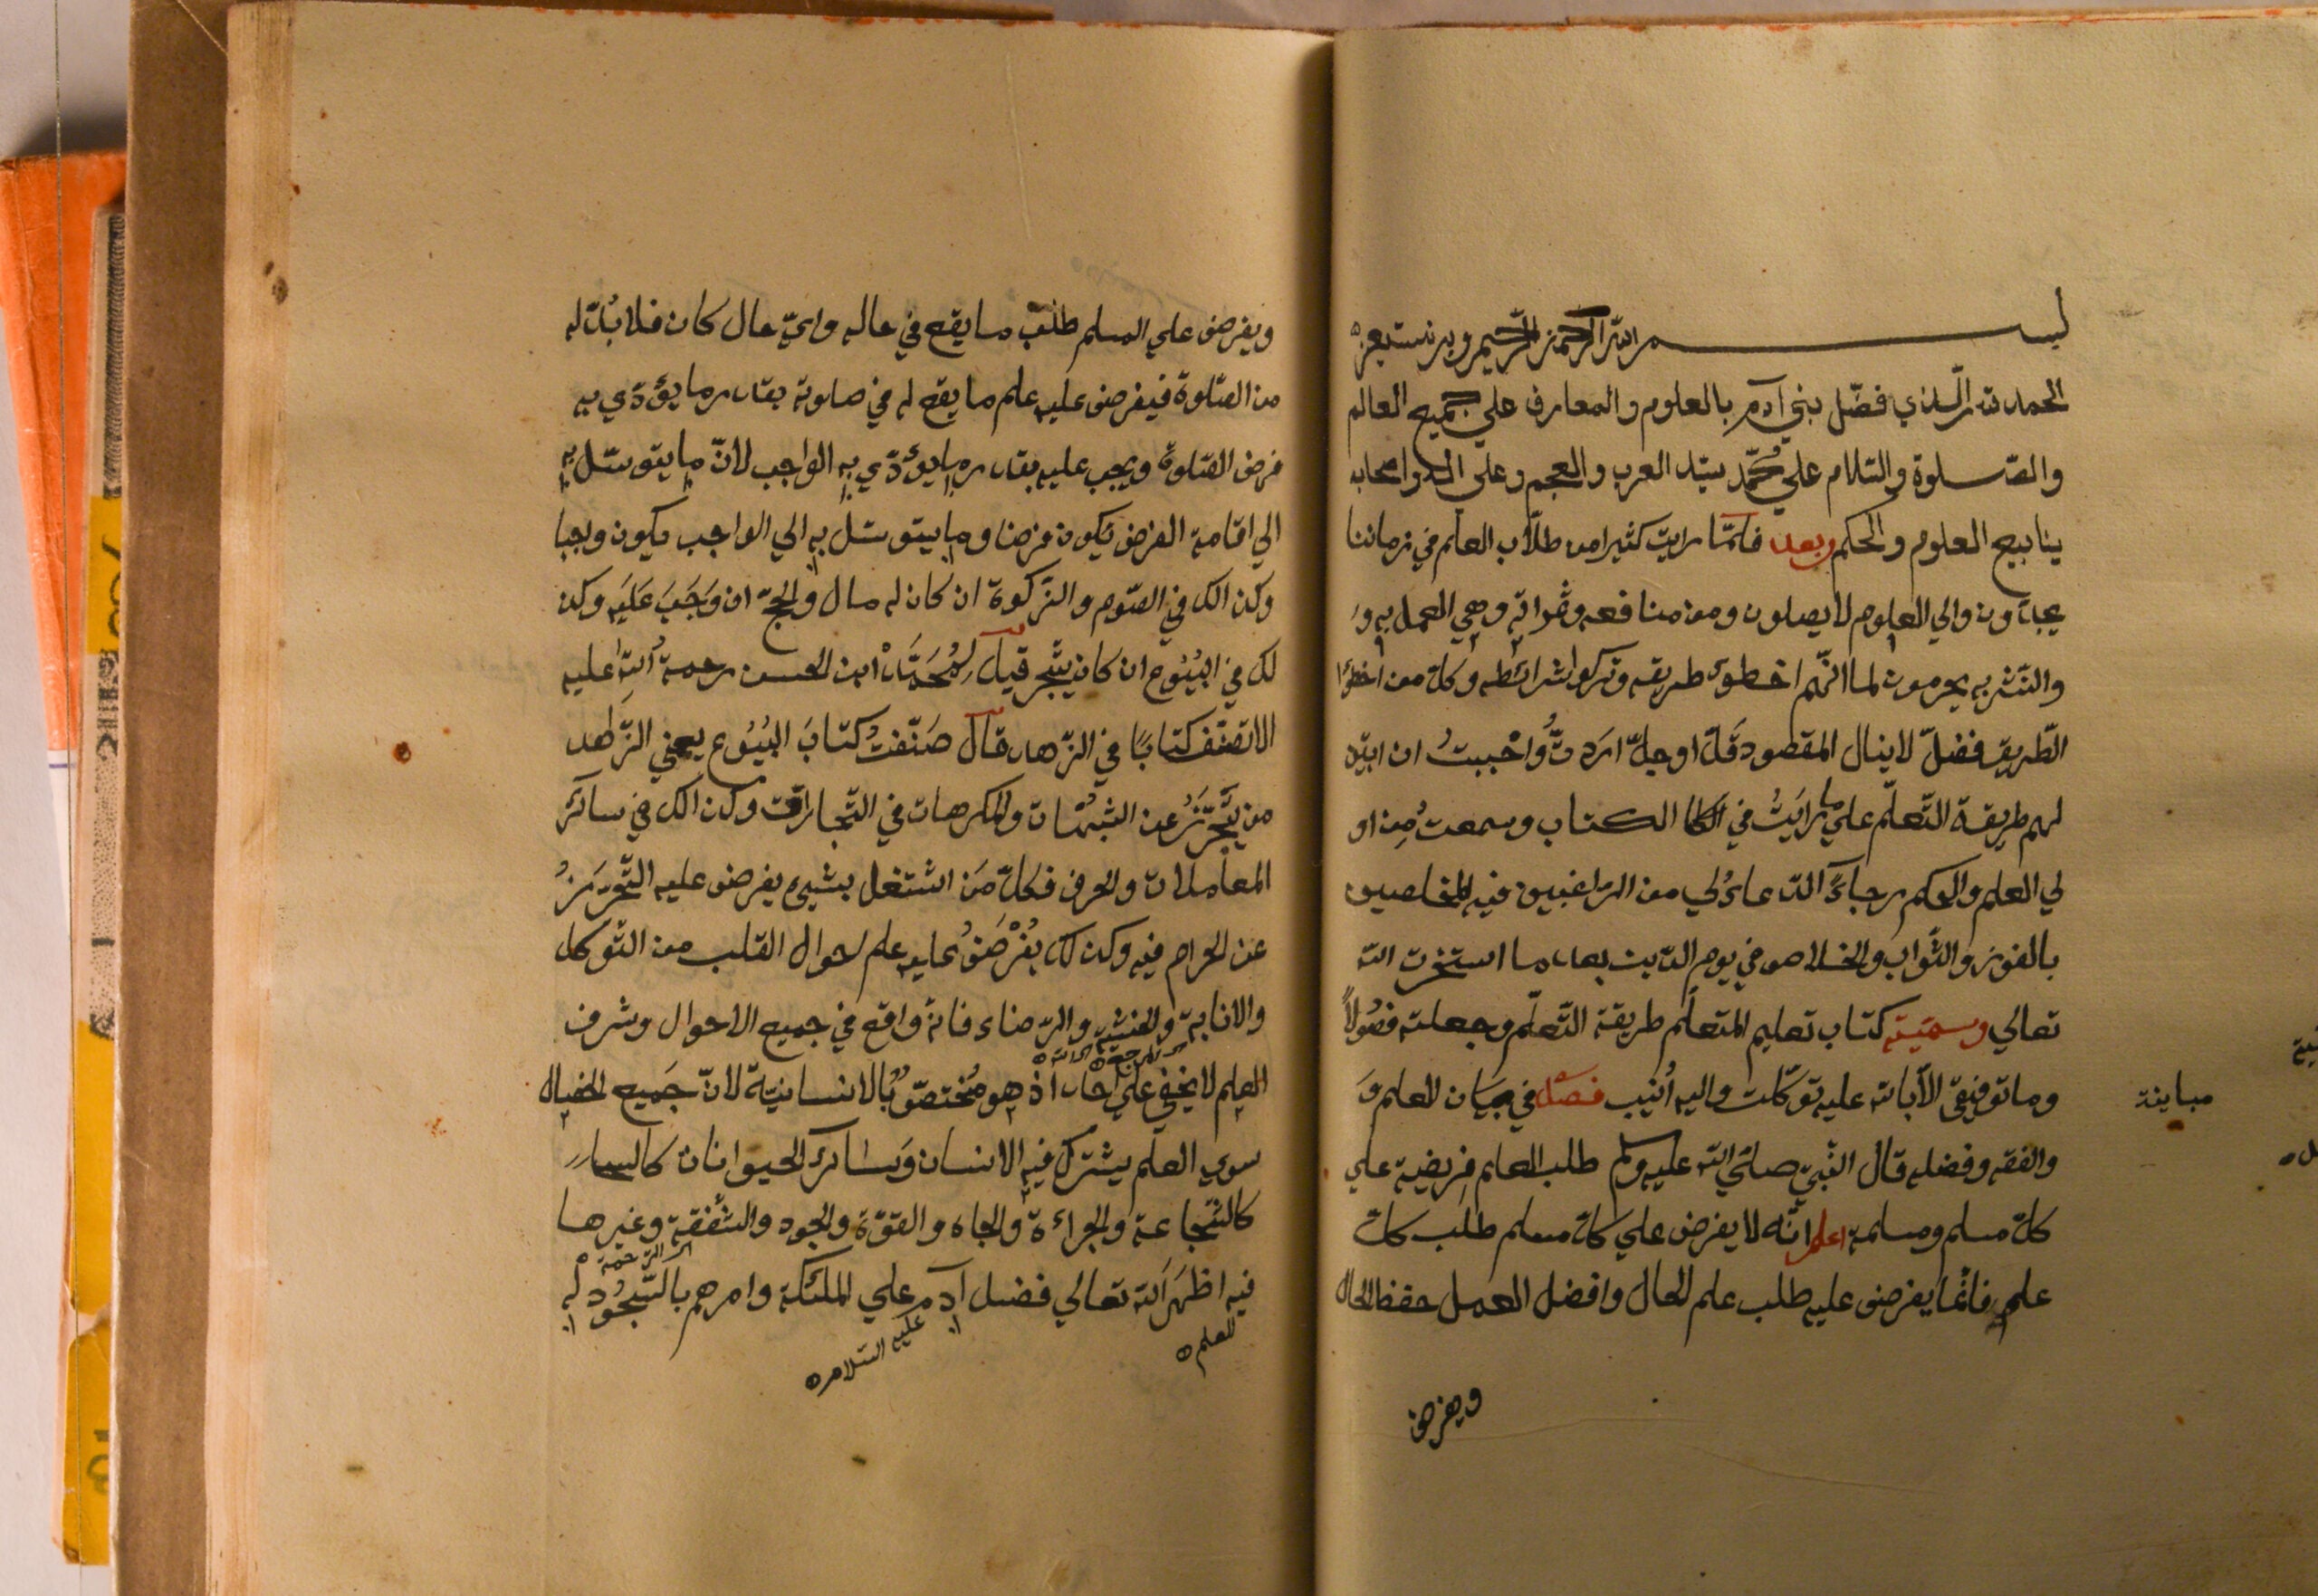 بسم الله الرحمن الرحيم وبه نستعين
الحمد لله الّذي فضّل بني آدم بالعلوم والمعارف علي جميع العالم
والصّلوة والسّلام علي محمّد سيّد العرب والعجم وعلي اله واصحابه
ينابيع العلوم والحكم وبعد فلمّا رايت كثيرا من طلّاب العلم في زماننا
يجدّون والي العلوم لا يصلون ومن منافعه وثمراته وهي العمل به و
والنّشر به يحرمون لما انّهم اخطوء طريقه وتركوا شرائطه وكلّ من اخطا
الطّريق فضلّ لا ينال المقصود قلّ او جلّ اردتُّ واحببتُ ان ابيّن
لهم طريقة التّعلّم علي ما رايتُ في الكتاب وسمعتُ من او
لي العلم والحكم رجاءً الدّعاء لي من الرّاغبين فيه المخلصين
بالفوز والثّواب والخلاص في يوم الدّين بعد ما استخرت الله
تعالي وسمّيته كتاب تعليم المتعلّم طريقة التّعلّم وجعلته فصُولًا
وما توفيقي الّا بالله عليه توكّلت واليه اُنيب فصل في بيان العلم وَ
والفقه وفضله قال النّبيّ صلّي الله عليه وسلم طلب العلم فريضة علي
كلّ مسلم ومسلمة اعلم انّه لا يفرض علي كلّ مسلم طلب كلّ
علم فانّما يفرض عليه طلب علم الحال وافضل العمل حفظ الحال
ويفرض
مباينة
ويفرض علي المسلم طلب ما يقع في حاله وايّ حال كان فلا بُدّ له
من الصّلوة فيفرض عليه علم ما يقع له في صلوته بقدر ما يؤدّي به
فرض الصّلوة ويجب عليه بقدر ما يؤدّي به الواجب لانّ ما يتوسّل به
الي اقامة الفرض يكون فرضا وما يتوسّل به الي الواجب يكون وجبا
وكذالك في الصّوم والزّكوة ان كان له مال والحجّ ان وَجَبَ عَلَيه وكذ
لك في البُيُوع ان كان يتّجر قيل لِمُحَمَّدْ ابن الحسن رحمة اللّه عليه
الا تصنّف كتابًا في الزّهد قال صَنّفتُ كتابَ البُيُوع يعني الزّاهد
من يَّحترّزُ عن الشّبُهات والمكرهات في التّجارات وكذالك في سائر
المعاملات والحرف فكلّ مَن اشتغل بشيء يفرض عليه التّحرّزُ
عن الحرام فيه وكذلك يُفْرَضُ عليه علم احوال القلب من التّوكل
والانابة والخشية والرّضاء فانّه واقع في جميع الاحوال وشرف
العلم لا يخفي علي احد اذ هو مُختصّ بالانسانيّة لانّ جَميع الخصال
سوي العلم يشترك فيه الانسان وَسائر الحيوانات
كالشّجاعة والجراءة والجاه والقوّة والجود والشّفقة وغيرها
اي الرّحمة
فيه اظهَر اللّه تعالي فضل آدم علي الملئكة وامرهم بالسّجُود له
للعلم
عليه السّلام